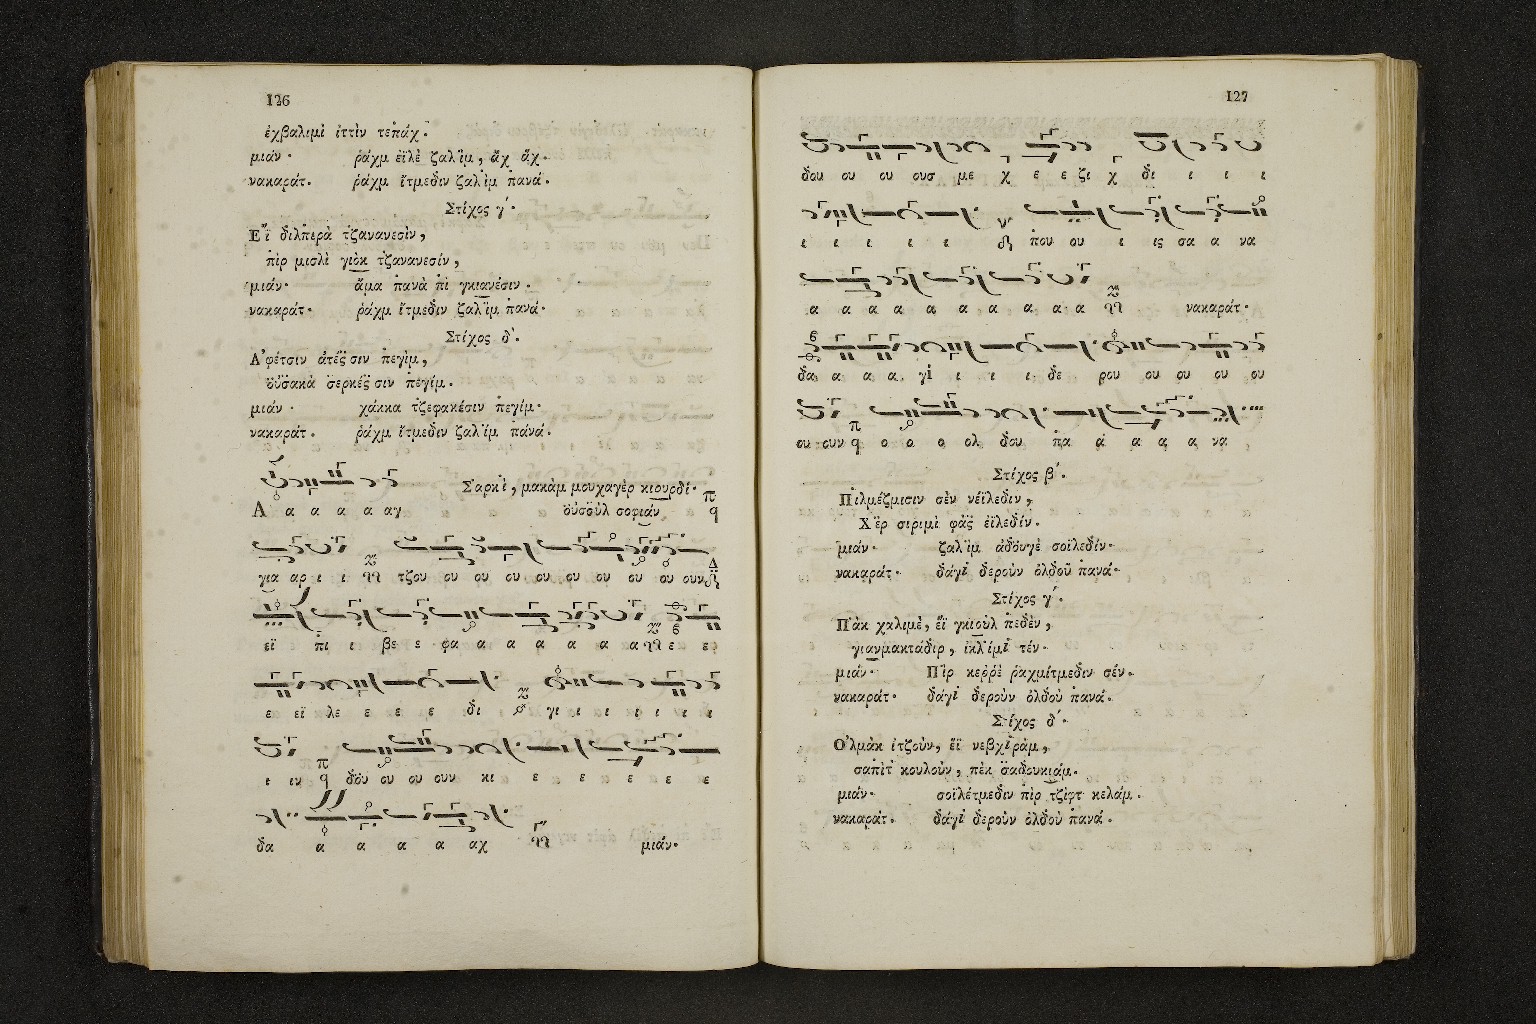 126
ἐχβαλιμὲ ἰττὶν τεπάχ.
μιάν· ῥάχμ ἐϊλὲ ζαλὶμ, ἄχ ἄχ.
νακαράτ. ῥάχμ ἴτμεδιν ζαλὶμ πανά.
Στίχος γ΄.
Εἴ διλπερὰ τζανανεσὶν,
πὶρ μισλὶ γιὸκ τζανανεσίν,
μιάν· ἄμα πανὰ πὶ γκιανέσιν.
νακαράτ. ῥάχμ ἴτμεδιν ζαλὶμ πανά.
Στίχος δ΄.
Ἀφέτσιν ἀτέσ̈ σιν πεγίμ,
οὔσακὰ σ̈ερκέσ̈ σιν πεγίμ.
μιάν· χάκκα τζεφακέσιν πεγίμ.
νακαράτ. ῥάχμ ἴτμεδιν ζαλὶμ πάνά.
Σαρκὶ, μακὰμ μουχαγὲρ κιουρδί·
Α α α α α αγ οὐσοὺλ σοφιάν
για αρ ι ι τζου ου ου ου ου ου ου ου ου ουν
εϊ πι ι βε ε φα α α α α α α ε ε
ε εϊ λε ε ε ε δι γι ι ι ι ι ι
ι ιν δόυ ου ου ουν κι ε ε ε ε ε
δα α α α α αχ μιάν·
127
δου ου ου ουσ με χ ε ε ζι χ δι ι ι ι
ι ι ι ι ι που ου ι ις σα α να
α α α α α α α α α α νακαράτ·
δα α α α γὶ ι ι ι δε ρου ου ου ου ου
ου ουν ο ο ο ολ δου πα α α α α να
Στίχος β΄.
Πιλμέζμισιν σὲν νέϊλεδιν,
Χὲρ σιριμὲ φάσ̈ ἐϊλεδίν.
μιάν· ζαλὶμ ἀδόυγὲ σοϊλεδίν·
νακαράτ· δάγὶ δεροὺν ὀλδοῦ πανά·
Στίχος γ΄.
Πὰκ χαλιμὲ, ἔϊ γκιοὺλ πεδὲν,
γιανμακτάδιρ, ἰκλίμὶ τέν·
μιάν· Πὶρ κεῤῥὲ ῥαχμίτμεδιν σέν.
νακαράτ· δάγὶ δεροὺν ὀλδοὺ πανά.
Στίχος δ΄.
Ὀλμὰκ ἰτζοὺν, ἔϊ νεβχὶρὰμ,
σαπὶτ κουλοὺν, πὲκ σ̈αδουκιάμ.
μιάν· σοϊλέτμεδιν πὶρ τζὶφτ κελάμ.
νακαράτ. δάγὶ δεροὺν ὀλδοὺ πανά.